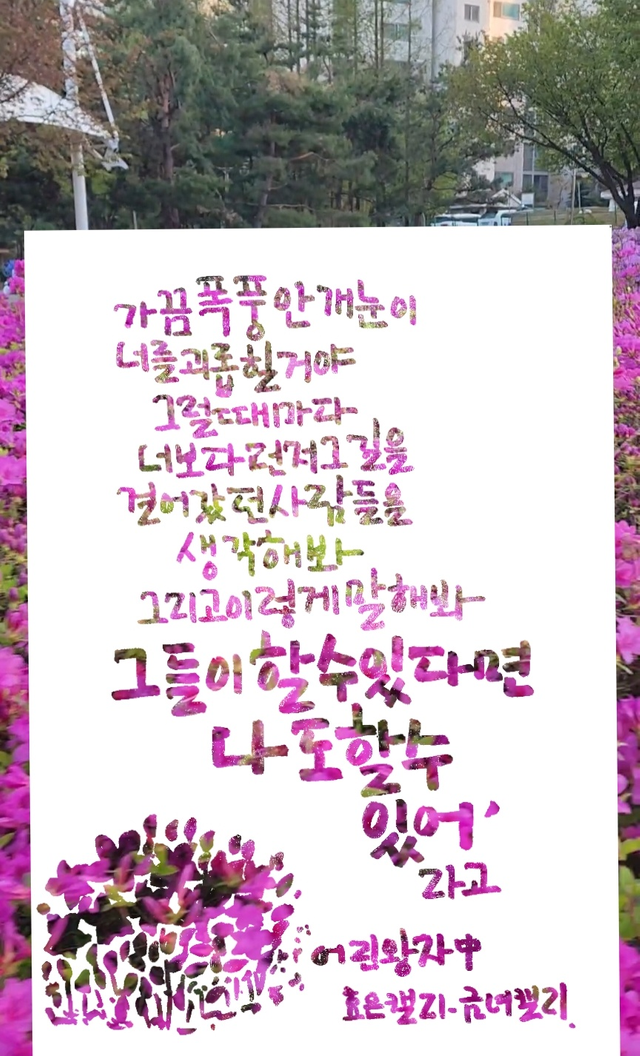 가끔 폭풍 안개 눈이
너를 괴롭힐거야
그럴때마다
너보다 먼저 그 길을
걸어갔던 사람들을
생각해봐
그리고 이렇게 말해봐
그들이 할 수 있다면
나도 할 수
있어'
라고
어린왕자中
효은캘리-금녀캘리